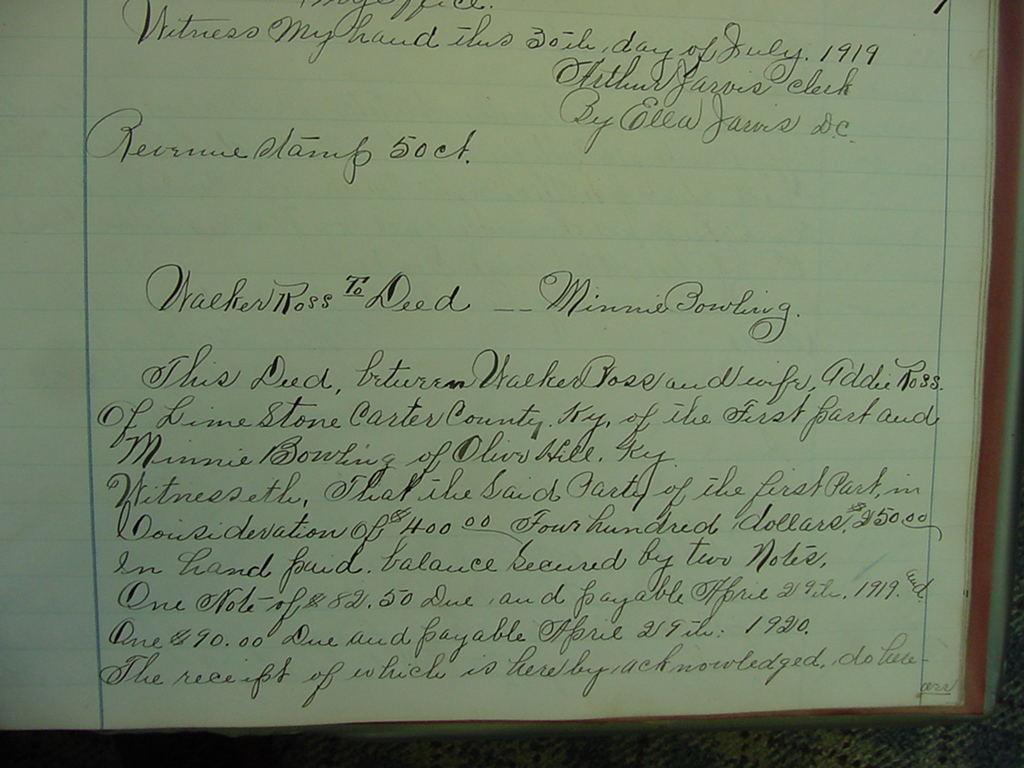 office.
Witness My hand this 30th, day of July. 1919
Arthur Jarvis Clerk
By Ella Jarvis D.C.
Revenue Stamp 50ct.
Walker Ross To Deed -- Minnie Bowling.
This Deed, between Walker Ross and wife, Addie Ross.
Of Lime Stone Carter County, Ky, of the First part and
Minnie Bowling of Olive Hill, Ky
Witnesseth, That the Said Party of the first Part, in
Consideration of $400 00 Four hundred dollars, $250 00
In hand paid. balance Secured by two Notes,
One Note of $82.50 Due and payable April 29th, 1919. and
One $90.00 Due and payable April 29th: 1920.
The receipt of which is hereby acknowledged, do here-